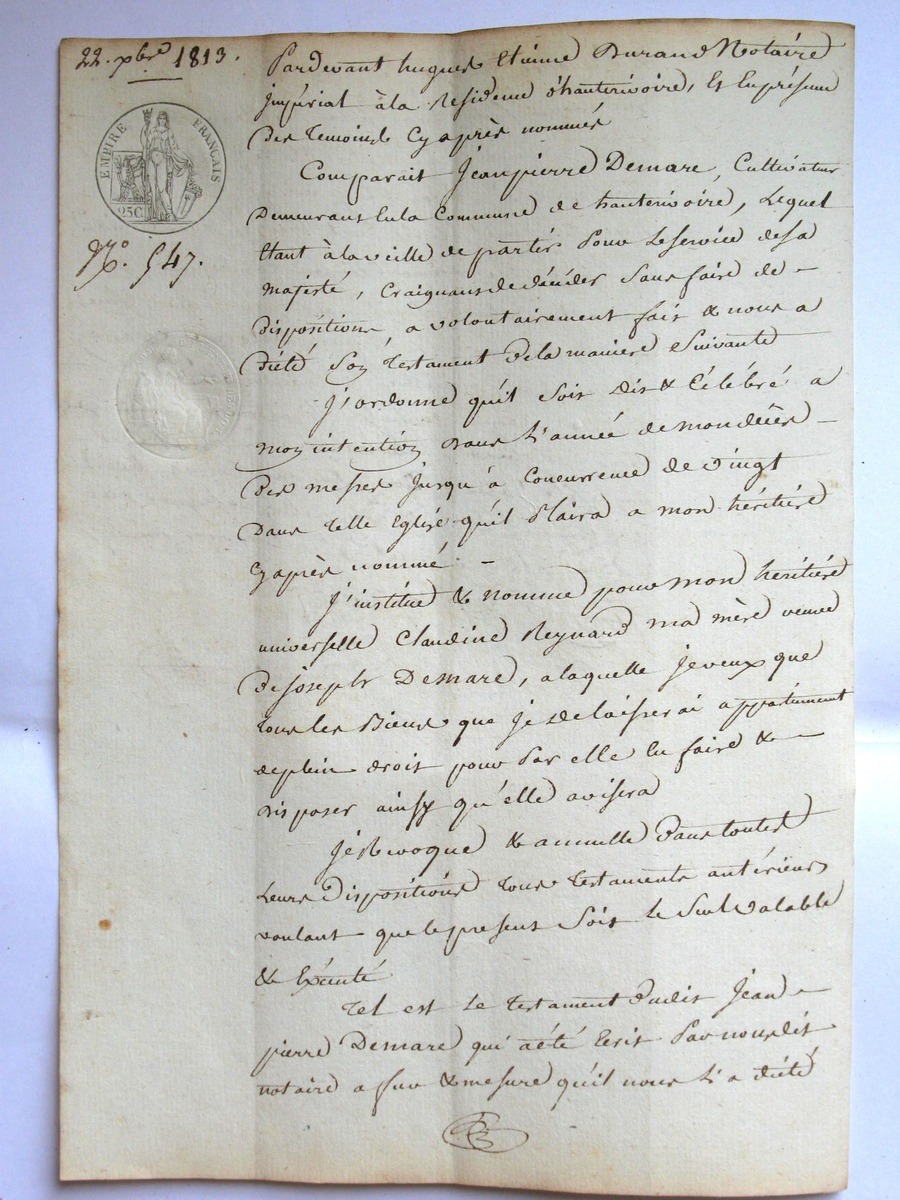 22. xbre 1813.
EMPIRE FRANÇAIS
25C
N.o 547.
Pardevant hugues Etienne Durand Notaire
impérial à la Residence d'hauterivoire, Et En présence
des temoins Cy après nommés
Comparait Jean pierre Demare, Cultivateur
Demeurant En la Commune de hauterivoire, Lequel
Etant à la veille de partir Pour Le service de sa
majesté, Craignant de décéder Sans faire de -
dispositions, a volontairement fait & nous a
dicté Son testament de la maniere Suivante
J'ordonne qu'il soit dit & Célébré a
mon intention dans L'année de mon décès -
des messes Jusqu'à Concurrence de vingt
dans telle Eglise qu'il Plaira a mon héritière
Cy après nommé -
J'institue & nomme pour mon héritière
universelle Claudine Reynard ma mère veuve
de joseph Demare, a laquelle je veux que
tous les Biens que je delaisserai appartiennent
de plein droit pour Par elle En faire & -
disposer ainsy qu'elle avisera
Je Revoque & annulle dans toutes
Leurs dispositions tous testaments antérieurs
voulant que le present Soit Le Seul valable
& Exécuté
Tel est Le testament dudit Jean -
pierre Demare qui a été Ecrit Par nous dit
notaire a fur & mesure qu'il nous L'a dicté